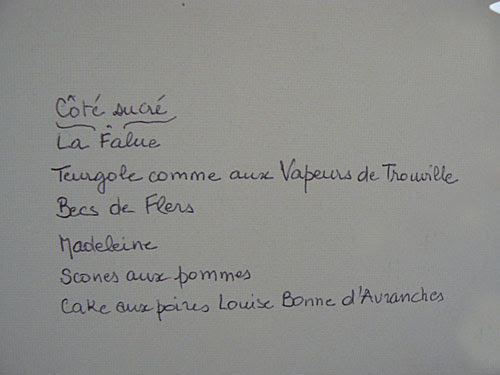 Côté sucré
La Falue
Teurgole comme aux Vapeurs de Trouville
Becs de Flers
Madeleine
Scones aux pommes
Cake aux poires Louise Bonne d'Avranches